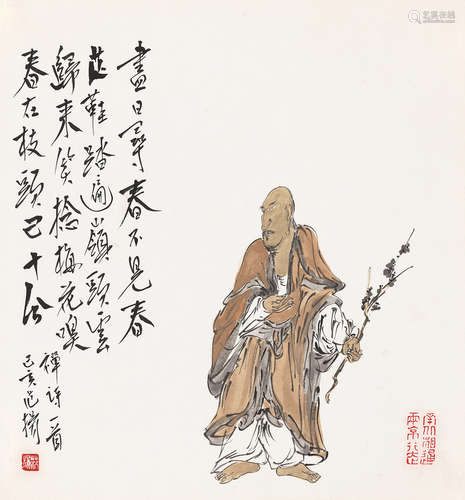 盡日尋春不見春
芒鞋踏遍嶺頭雲
歸來笑捻梅花嗅
春在枝頭已十分
禪詩一首
己亥